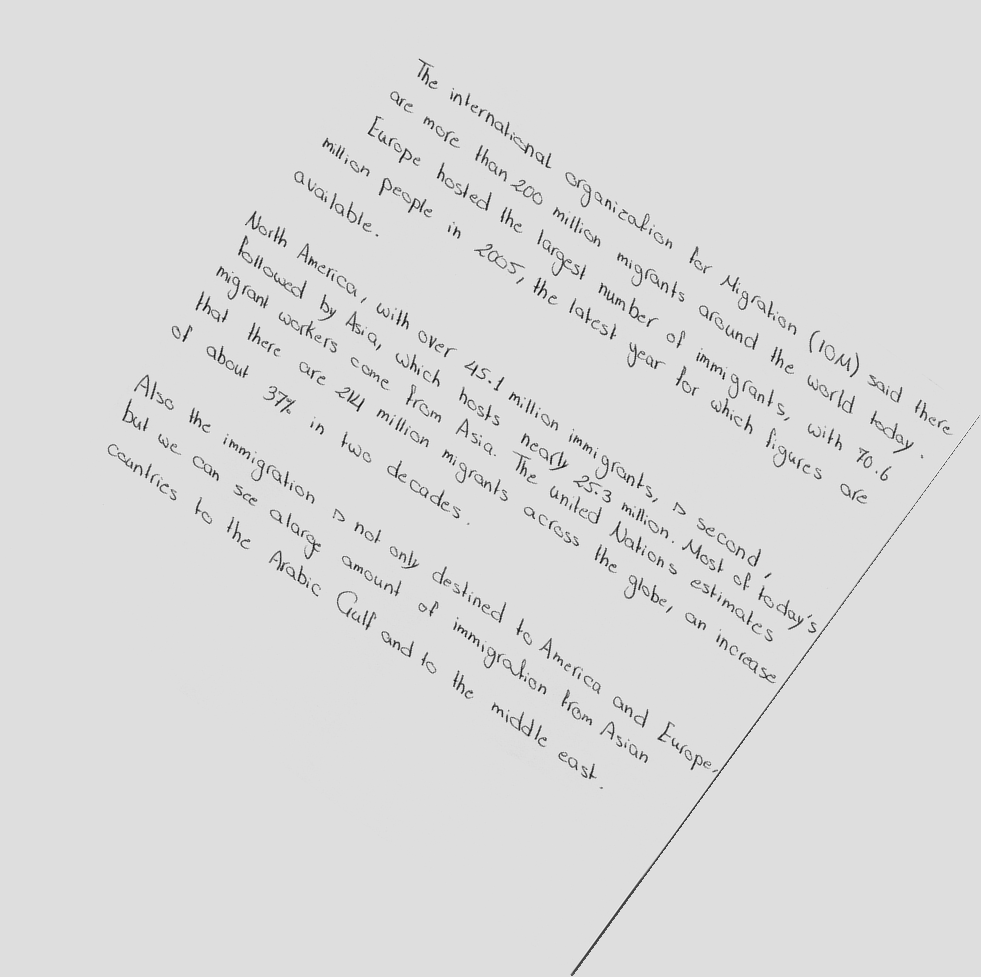 The international organization for Migration (IOM) said there
are more than 200 million migrants around the world today.
Europe hosted the largest number of immigrants, with 70.6
million people in 2005, the latest year for which figures are
available.
North America, with over 45.1 million immigrants, is second,
followed by Asia, which hosts nearly 25.3 million. Most of today's
migrant workers come from Asia. The united Nations estimates
that there are 214 million migrants across the globe, an increase
of about 37% in two decades.
Also the immigration is not only destined to America and Europe,
but we can see alarge amount of immigration from Asian
countries to the Arabic Gulf and to the middle east.